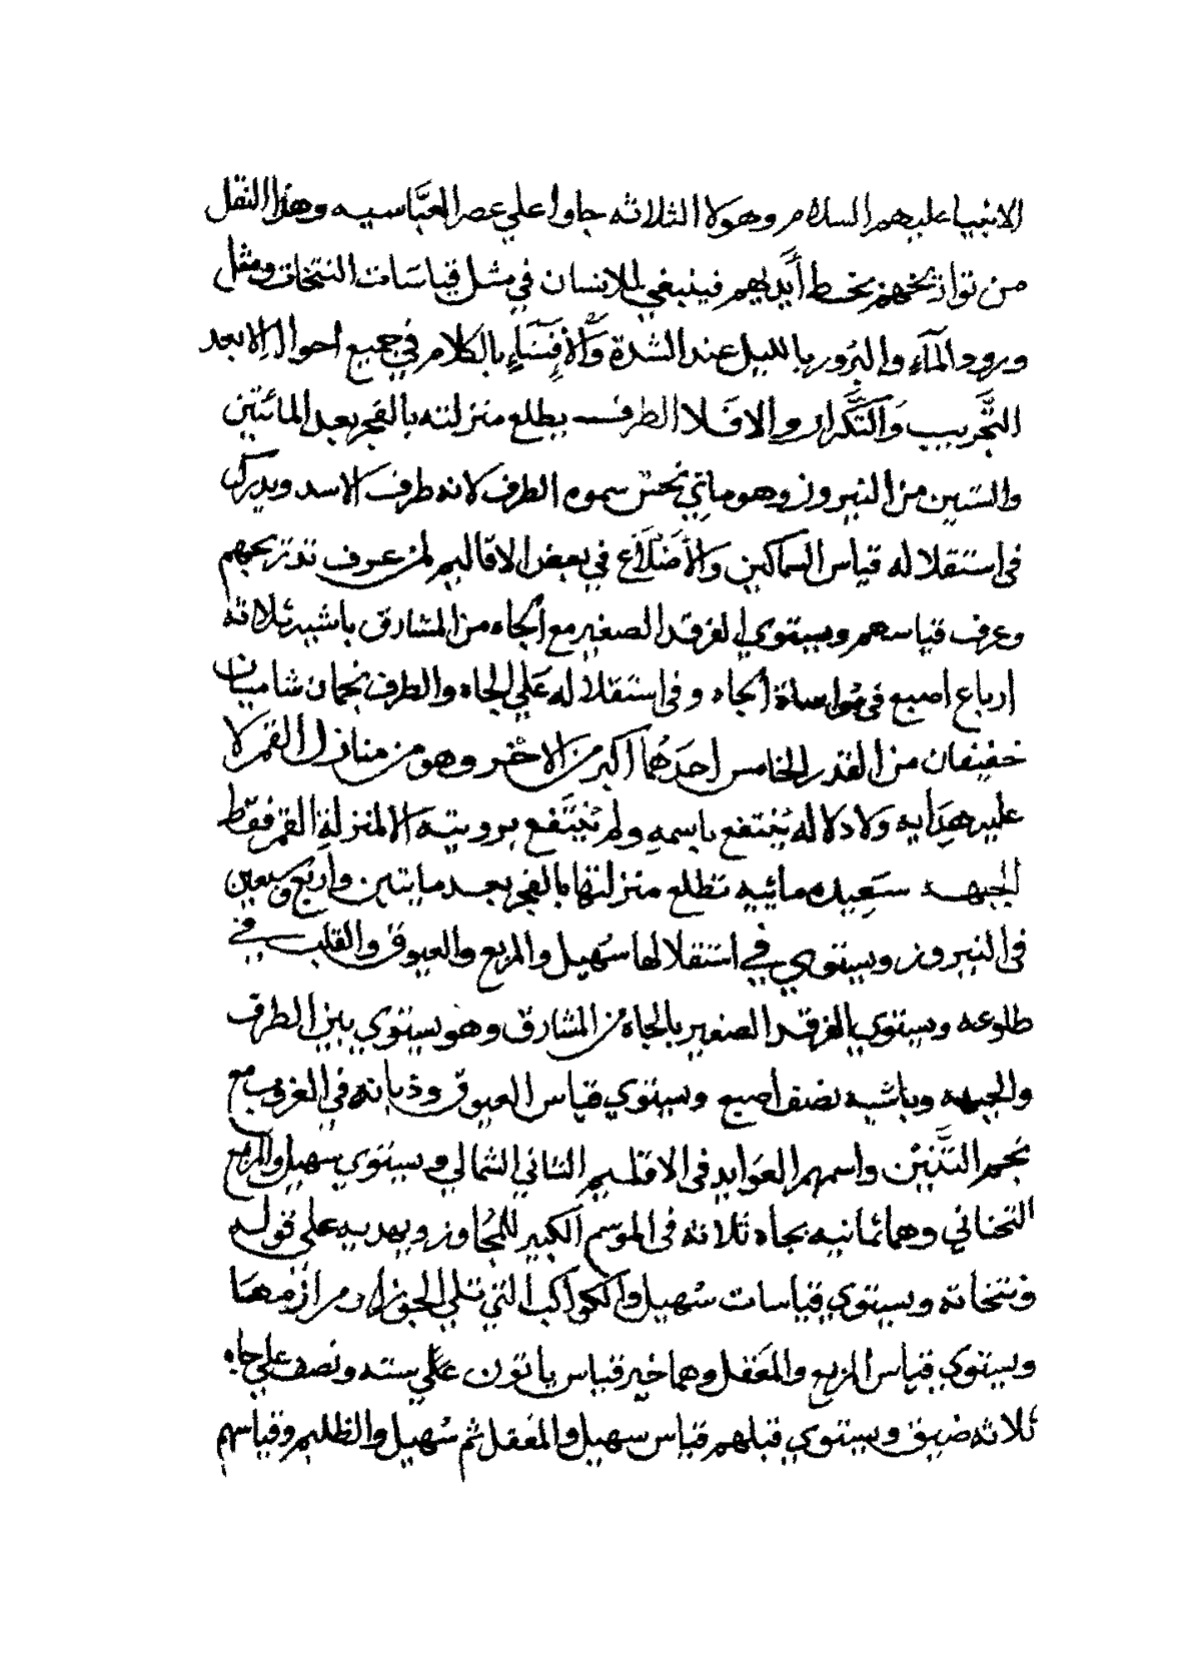 الانبيا عليهم السلام وهولا الثلاثه جاوا علي عصر العبَّاسيه وهذا النقل
من تواريخهم بخط أيديهم فينبغي للانسان في مثل قياسات النتخات ومثل
ورود المآء والبرور بالليل عند الشدة والأفشاء بالكلام في جميع احوال الا بعد
التَّجريب وَالتَّكرار والا فلا الطرف يطلع منزلته بالفجر بعد المائتين
والستين من النيروز وهو مايي نحس سموه الطرف لانه طرف الاسد ويدرك
في استقلاله قياس السماكين والأضلاع في بعض الاقاليم لمن عرف تدريجهم
وعرف قياسهم ويستوي الفرقد الصغير مع الجاه من المشارق باشيه ثلاثة
ارباع اصبع في مواساة الجاه وفي استقلاله علي الجاه والطرف نجمان شاميان
خفيفان من القدر الخامس احدهما اكبر من الاخر وهو من منازل القمر لا
عليه هدايه ولا دلاله يُنتفع باسمه ولم يُنتفع برويته الا لمنزلة القمر فقط
الجبهه سعيده مائيه تطلع منزلتها بالفجر بعد مايتين واربع وسبعين
في النيروز ويستوي في استقلالها سُهيل والمربع والعيوق والقلب في
طلوعه ويستوي الفرقد الصغير بالجاه من المشارق وهو يستوي بين الطرف
والجبهه وباشيه نصف اصبع ويستوي قياس العيوق وذبانه في الغروب مع
نجم التنِّين واسمهم العوايد في الاقليم الثاني الشمالي ويستوي سهيل والمربع
التحتاني وهما ثمانيه بجاه ثلاثة في الموسم الكبير للمجاوز ويهديه علي قوله
ونتخاته ويستوي قياسات سُهيل والكواكب التي تلي الجوزا
ويستوي قياس المربع والمعقل وهما خير قياس ياتون علي سته ونصف علي جاه
ثلاثه ضيق ويستوي قبلهم قياس سهيل والمعقل ثم سُهيل والظليم وقياسهم